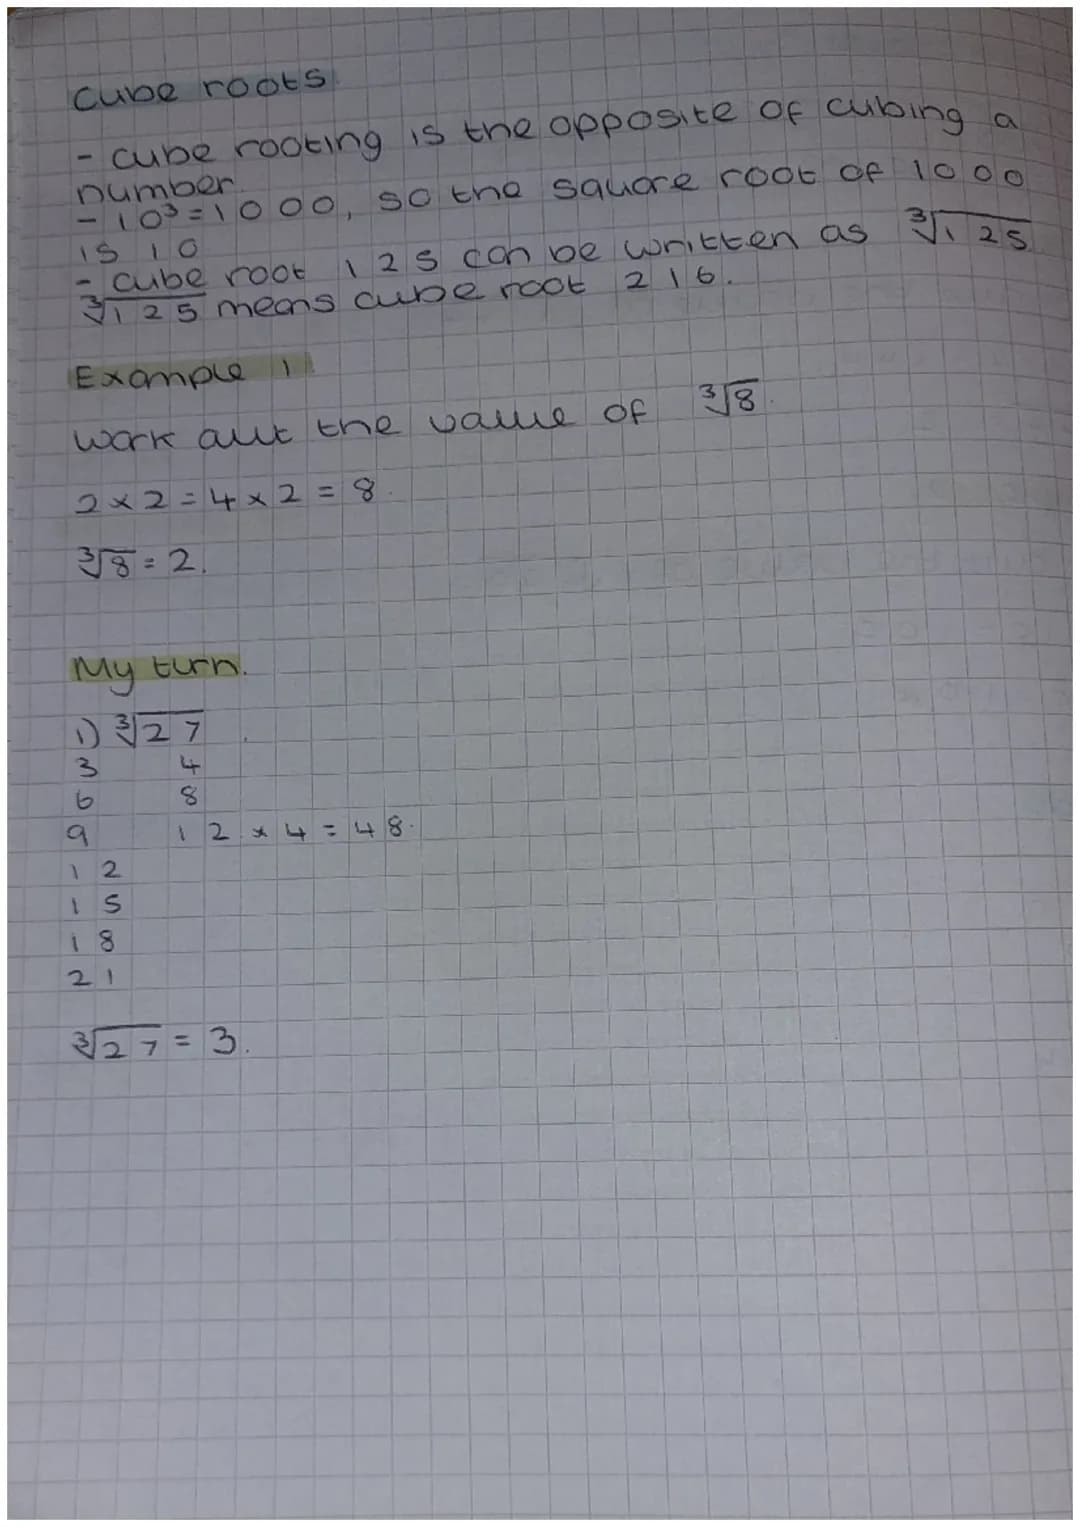 Cube roots
- cube rooting is the opposite of cubing a
number.
- 10³ = 1000, so the square root of 1000
is 10
- cube root 125 can be written as ∛125
∛125 means cube root 216.
Example 1
Work out the value of ∛8.
2 × 2 = 4 × 2 = 8.
∛8 = 2.
My turn.
1) ∛27
3 4
6 8
9 12 × 4 = 48.
12
15
18
21
∛27 = 3.